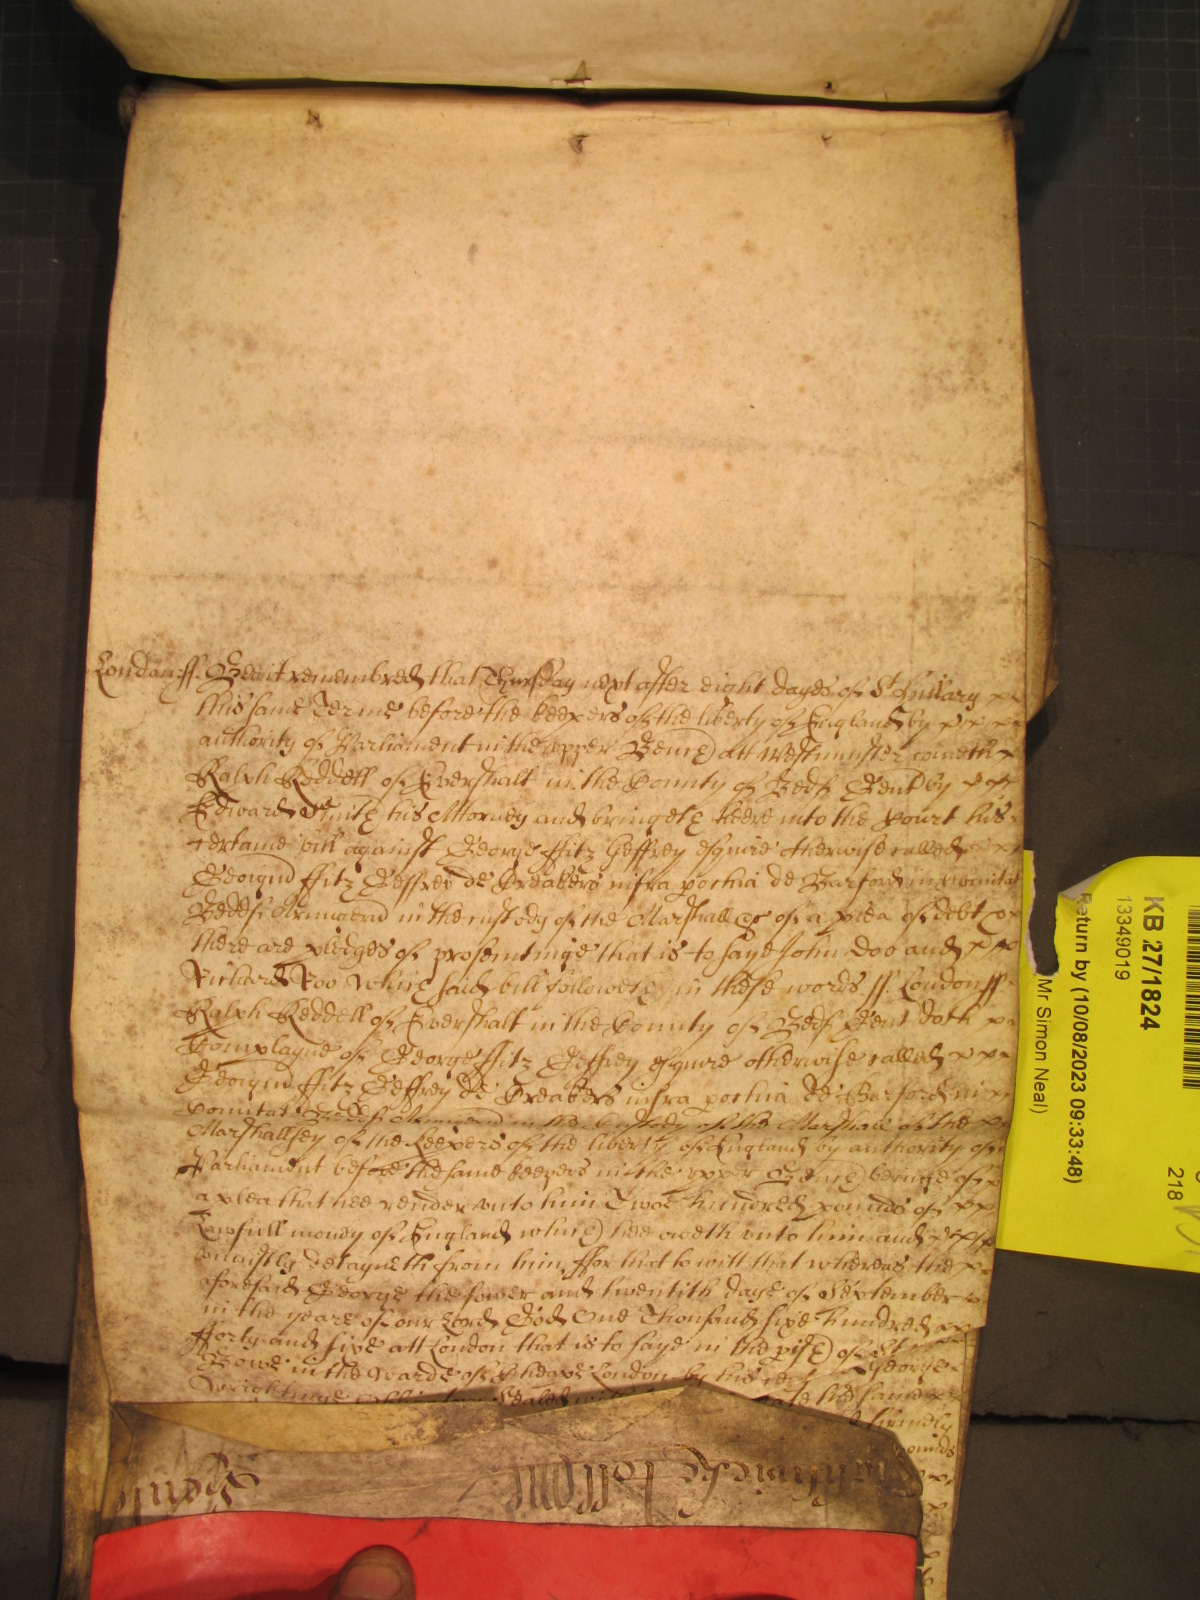 London ss. Bee it remembred that Thursday next after eight dayes of St Hillary
this same Terme before the keepers of the liberty of England by
authority of Parliament in the upper Bench att Westminster cometh
Ralph Reddell of Evershalt in the County of Bedf Gent by
Edward his Attorney and bringeth heere into the Court his
certaine bill against George ffitz Geffrey esquire otherwise called
Georgiu ffitz Geffrey de Creakers infra pochia de Barford in Comitat
Bedd Armigerud in the custody of the Marshall &c of a plea of debt
there are pledges of prosecutinge that is to saye John Doo and
Richard Roo which said bill followeth in these words ss. London ss
Ralph Reddell of Evershalt in the County of Bedf Gent doth
Complayne of George ffitz Geffrey esquire otherwise called
Georgiu ffitz Geffrey de Creakers infra pochia de Barford in
Comitat Bedd Armigerud in the Custody of the Marshall of the
Marshallsey of the Keepers of the liberty of England by authority of
Parliament before the same keepers in the upper Bench beinge of
a plea that hee render unto him Twoe hundred pounds of
Lawfull money of England which hee oweth unto him and
uniustly detayneth from him ffor that to witt that whereas the
aforesaid George the fower and twentith daye of September
in the yeare of our Lord God One Thousand sixe hundred
fforty and five att London that is to saye in the pish of St
Bowe in the Warde of Cheape London by his George
Writinge Sealed with same
firmely
pounds
KB 27/1824
13349019
Return by (10/08/2023 09:33:48)
Mr Simon Neal)
218